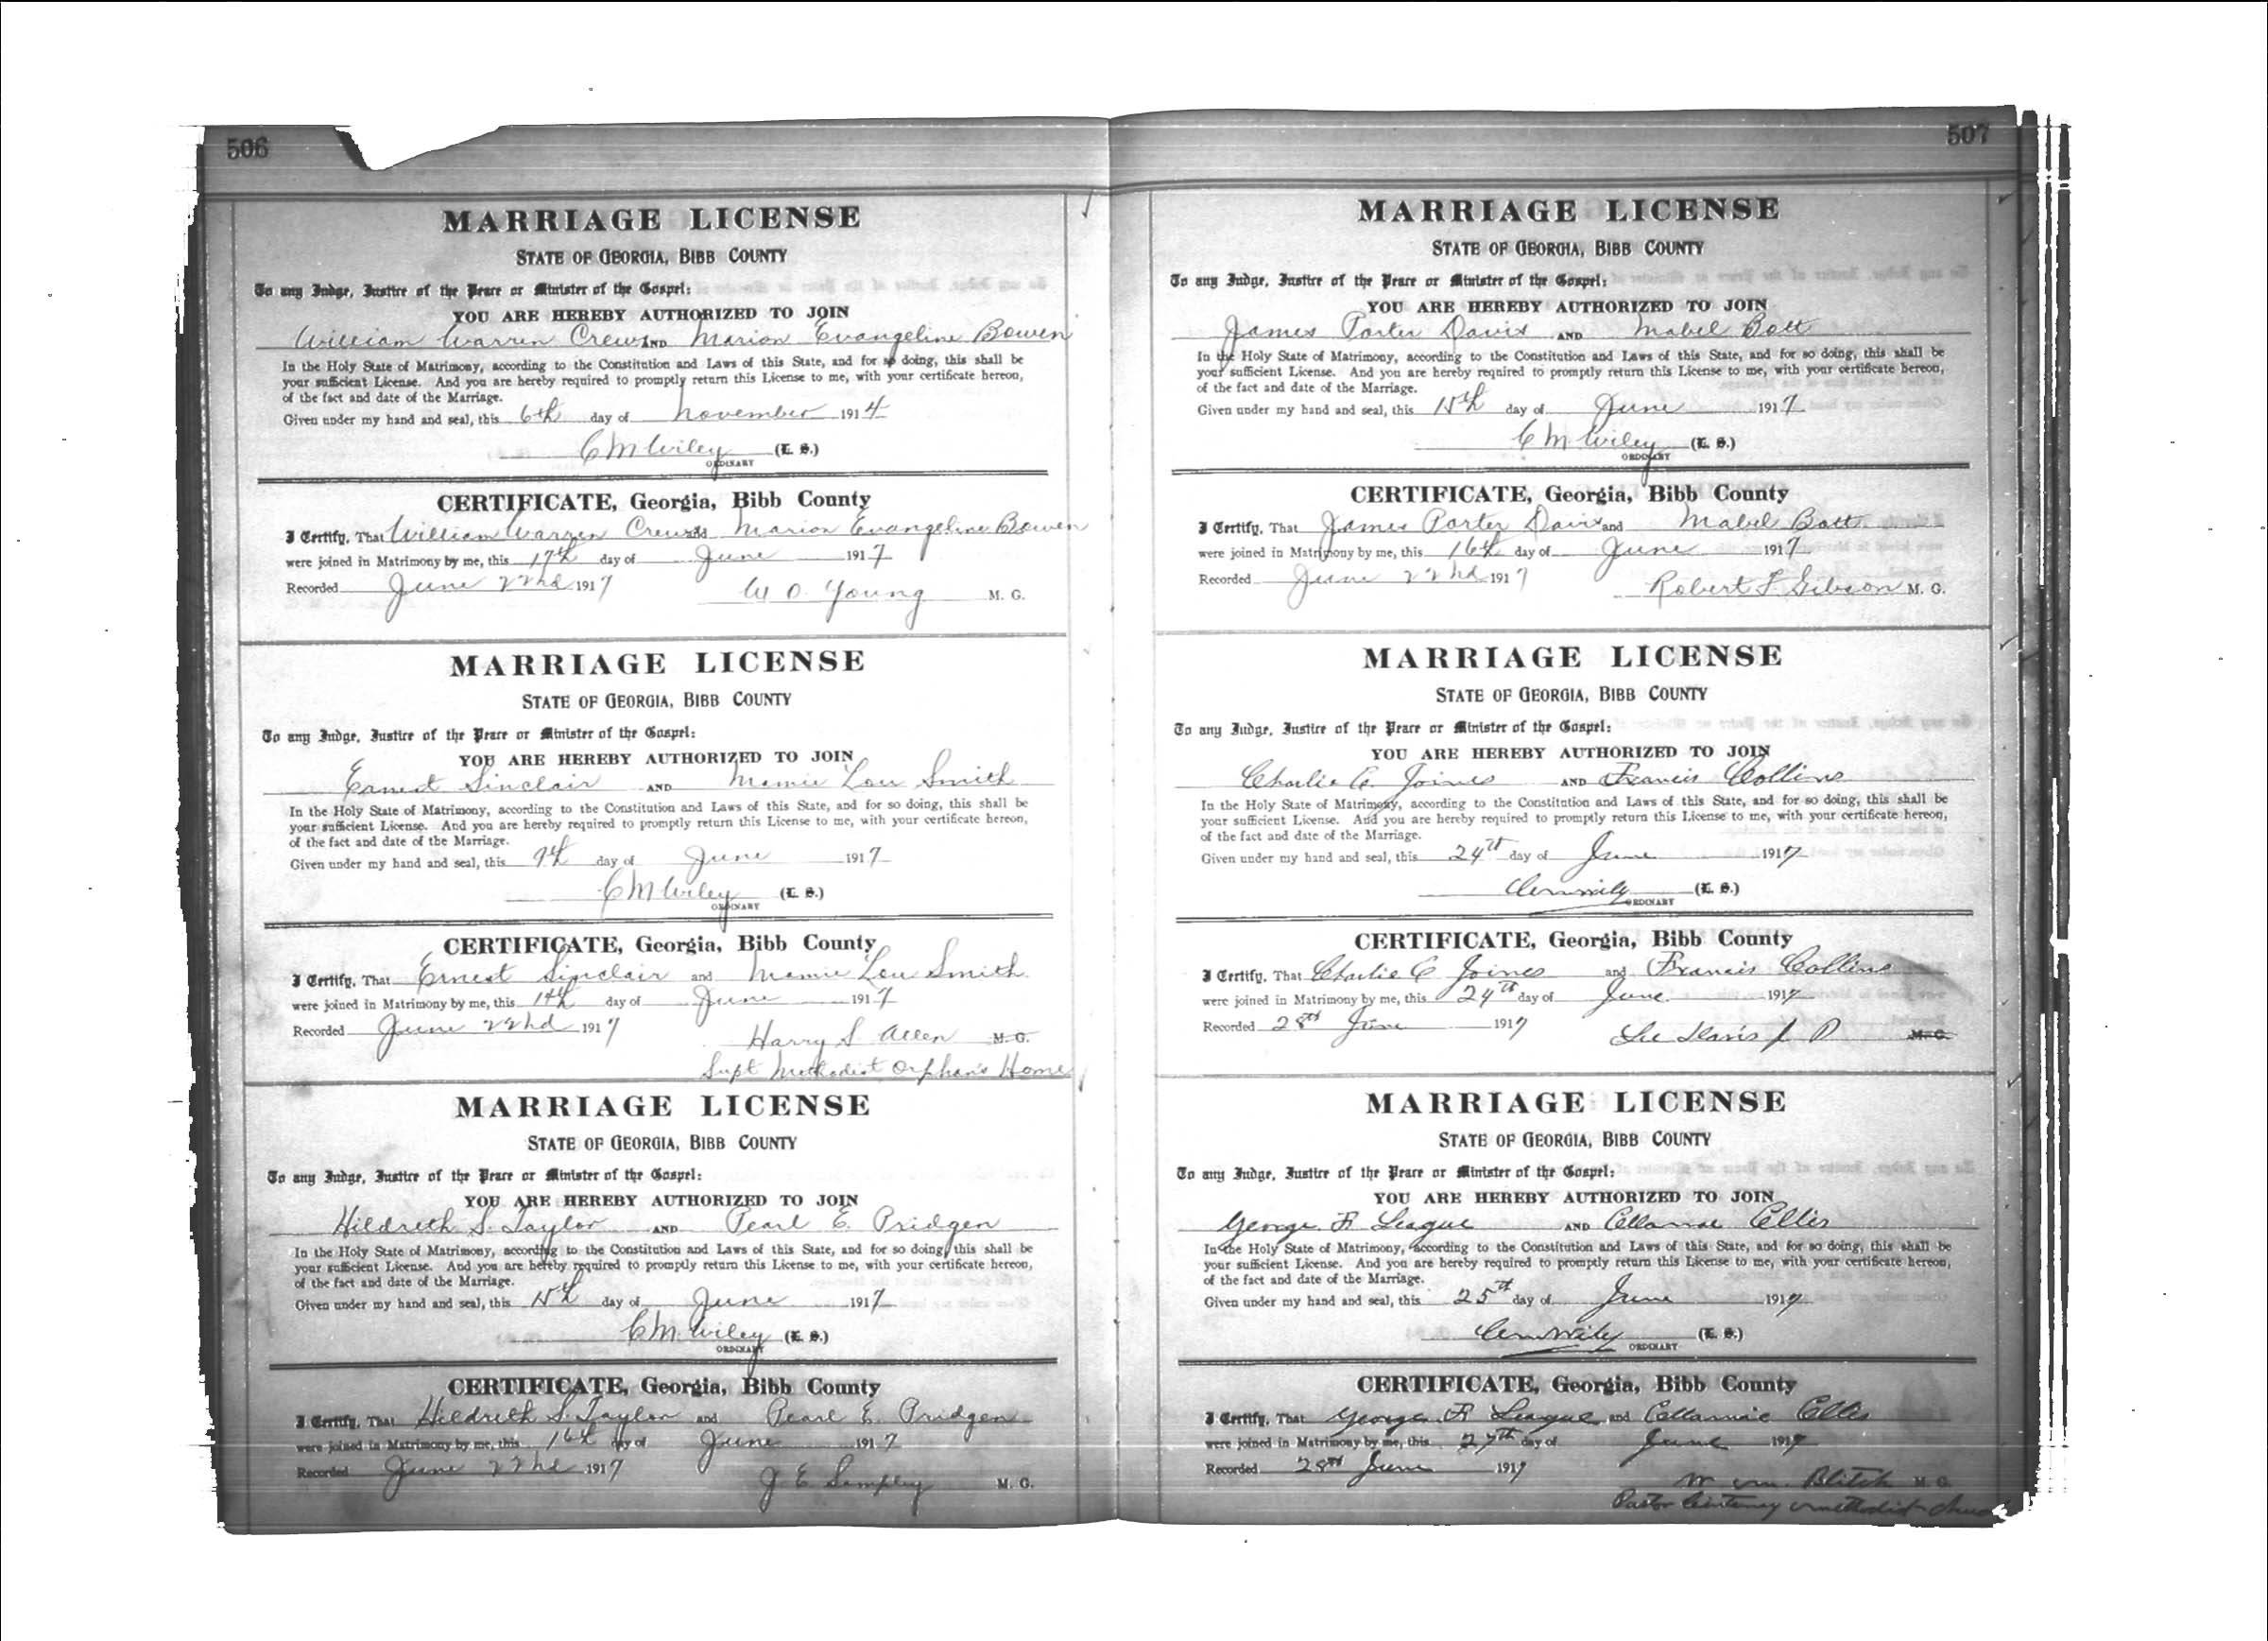 506
MARRIAGE LICENSE
STATE OF GEORGIA, BIBB COUNTY
To any Judge, Justice of the Peace or Minister of the Gospel:
YOU ARE HEREBY AUTHORIZED TO JOIN
William Warren Crews AND Marion Evangeline Bowen
In the Holy State of Matrimony, according to the Constitution and Laws of this State, and for so doing, this shall be
your sufficient License. And you are hereby required to promptly return this License to me, with your certificate hereon,
of the fact and date of the Marriage.
Given under my hand and seal, this 6th day of November 1914
C M Wiley (L. S.)
ORDINARY
CERTIFICATE, Georgia, Bibb County
I Certify, That William Warren Crews Marion Evangeline Bowen
were joined in Matrimony by me, this 17th day of June 1917
Recorded June 22nd 1917 W O Young M. G.
MARRIAGE LICENSE
STATE OF GEORGIA, BIBB COUNTY
To any Judge, Justice of the Peace or Minister of the Gospel:
YOU ARE HEREBY AUTHORIZED TO JOIN
Ernest Sinclair AND Mamie Lou Smith
In the Holy State of Matrimony, according to the Constitution and Laws of this State, and for so doing, this shall be
your sufficient License. And you are hereby required to promptly return this License to me, with your certificate hereon,
of the fact and date of the Marriage.
Given under my hand and seal, this day of June 1917
C M Wiley (L. S.)
ORDINARY
CERTIFICATE, Georgia, Bibb County
I Certify, That Ernest Sinclair and Mamie Lou Smith
were joined in Matrimony by me, this day of June 1917
Recorded June 22nd 1917 Harry S Allen M. G.
Supt Methodist Orphan's Home
MARRIAGE LICENSE
STATE OF GEORGIA, BIBB COUNTY
To any Judge, Justice of the Peace or Minister of the Gospel:
YOU ARE HEREBY AUTHORIZED TO JOIN
Hildreth S. Taylor AND Pearl E. Pridgen
In the Holy State of Matrimony, according to the Constitution and Laws of this State, and for so doing, this shall be
your sufficient License. And you are hereby required to promptly return this License to me, with your certificate hereon,
of the fact and date of the Marriage.
Given under my hand and seal, this 15th day of June 1917
C M. Wiley (L. S.)
ORDINARY
CERTIFICATE, Georgia, Bibb County
I Certify, That Hildreth S. Taylor and Pearl E. Pridgen
were joined in Matrimony by me, this 16th day of June 1917
Recorded June 22nd 1917 J E Sampley M. G.
507
MARRIAGE LICENSE
STATE OF GEORGIA, BIBB COUNTY
To any Judge, Justice of the Peace or Minister of the Gospel:
YOU ARE HEREBY AUTHORIZED TO JOIN
James Porter Davis AND Mabel Batt
In the Holy State of Matrimony, according to the Constitution and Laws of this State, and for so doing, this shall be
your sufficient License. And you are hereby required to promptly return this License to me, with your certificate hereon,
of the fact and date of the Marriage.
Given under my hand and seal, this 15th day of June 1917
C M Wiley (L. S.)
ORDINARY
CERTIFICATE, Georgia, Bibb County
I Certify, That James Porter Davis and Mabel Batt
were joined in Matrimony by me, this 16th day of June 1917
Recorded June 22nd 1917 Robert F. Gibson M. G.
MARRIAGE LICENSE
STATE OF GEORGIA, BIBB COUNTY
To any Judge, Justice of the Peace or Minister of the Gospel:
YOU ARE HEREBY AUTHORIZED TO JOIN
Charlie C. Joines AND Francis Collins
In the Holy State of Matrimony, according to the Constitution and Laws of this State, and for so doing, this shall be
your sufficient License. And you are hereby required to promptly return this License to me, with your certificate hereon,
of the fact and date of the Marriage.
Given under my hand and seal, this 24th day of June 1917
C M Wiley (L. S.)
ORDINARY
CERTIFICATE, Georgia, Bibb County
I Certify, That Charlie C Joines and Francis Collins
were joined in Matrimony by me, this 24th day of June 1917
Recorded 28th June 1917 Lee Davis J P M. G.
MARRIAGE LICENSE
STATE OF GEORGIA, BIBB COUNTY
To any Judge, Justice of the Peace or Minister of the Gospel:
YOU ARE HEREBY AUTHORIZED TO JOIN
George F. League AND Cellamae Ellis
In the Holy State of Matrimony, according to the Constitution and Laws of this State, and for so doing, this shall be
your sufficient License. And you are hereby required to promptly return this License to me, with your certificate hereon,
of the fact and date of the Marriage.
Given under my hand and seal, this 25th day of June 1917
C M Wiley (L. S.)
ORDINARY
CERTIFICATE, Georgia, Bibb County
I Certify, That George F. League and Cellamae Ellis
were joined in Matrimony by me, this 27th day of June 1917
Recorded 28th June 1917 Blitch M. G.
Pastor Centenary Methodist Church